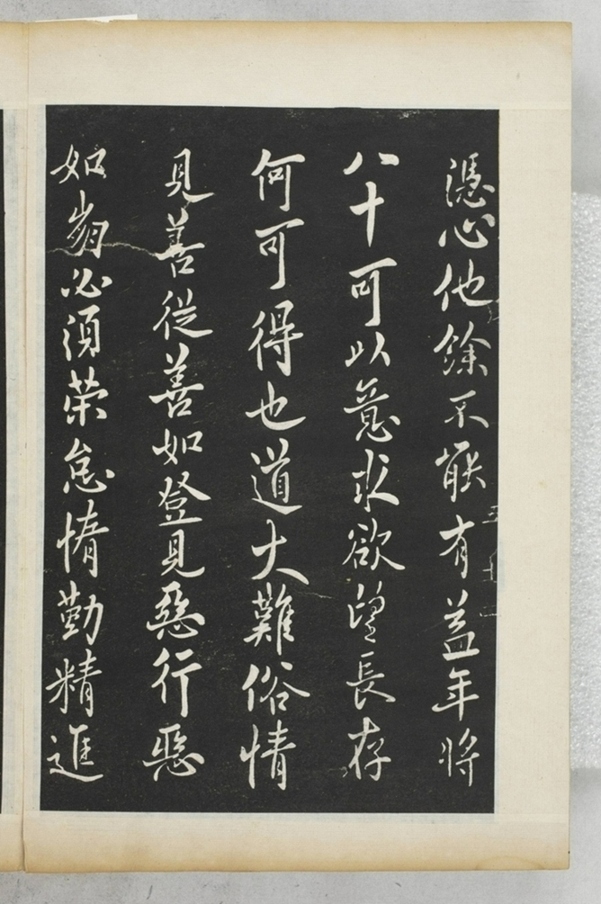 憑心他餘不能有益年將
八十可以意求欲望長存
何可得也道大難俗情
見善從善如登見惡行惡
如崩必須策怠惰勤精進